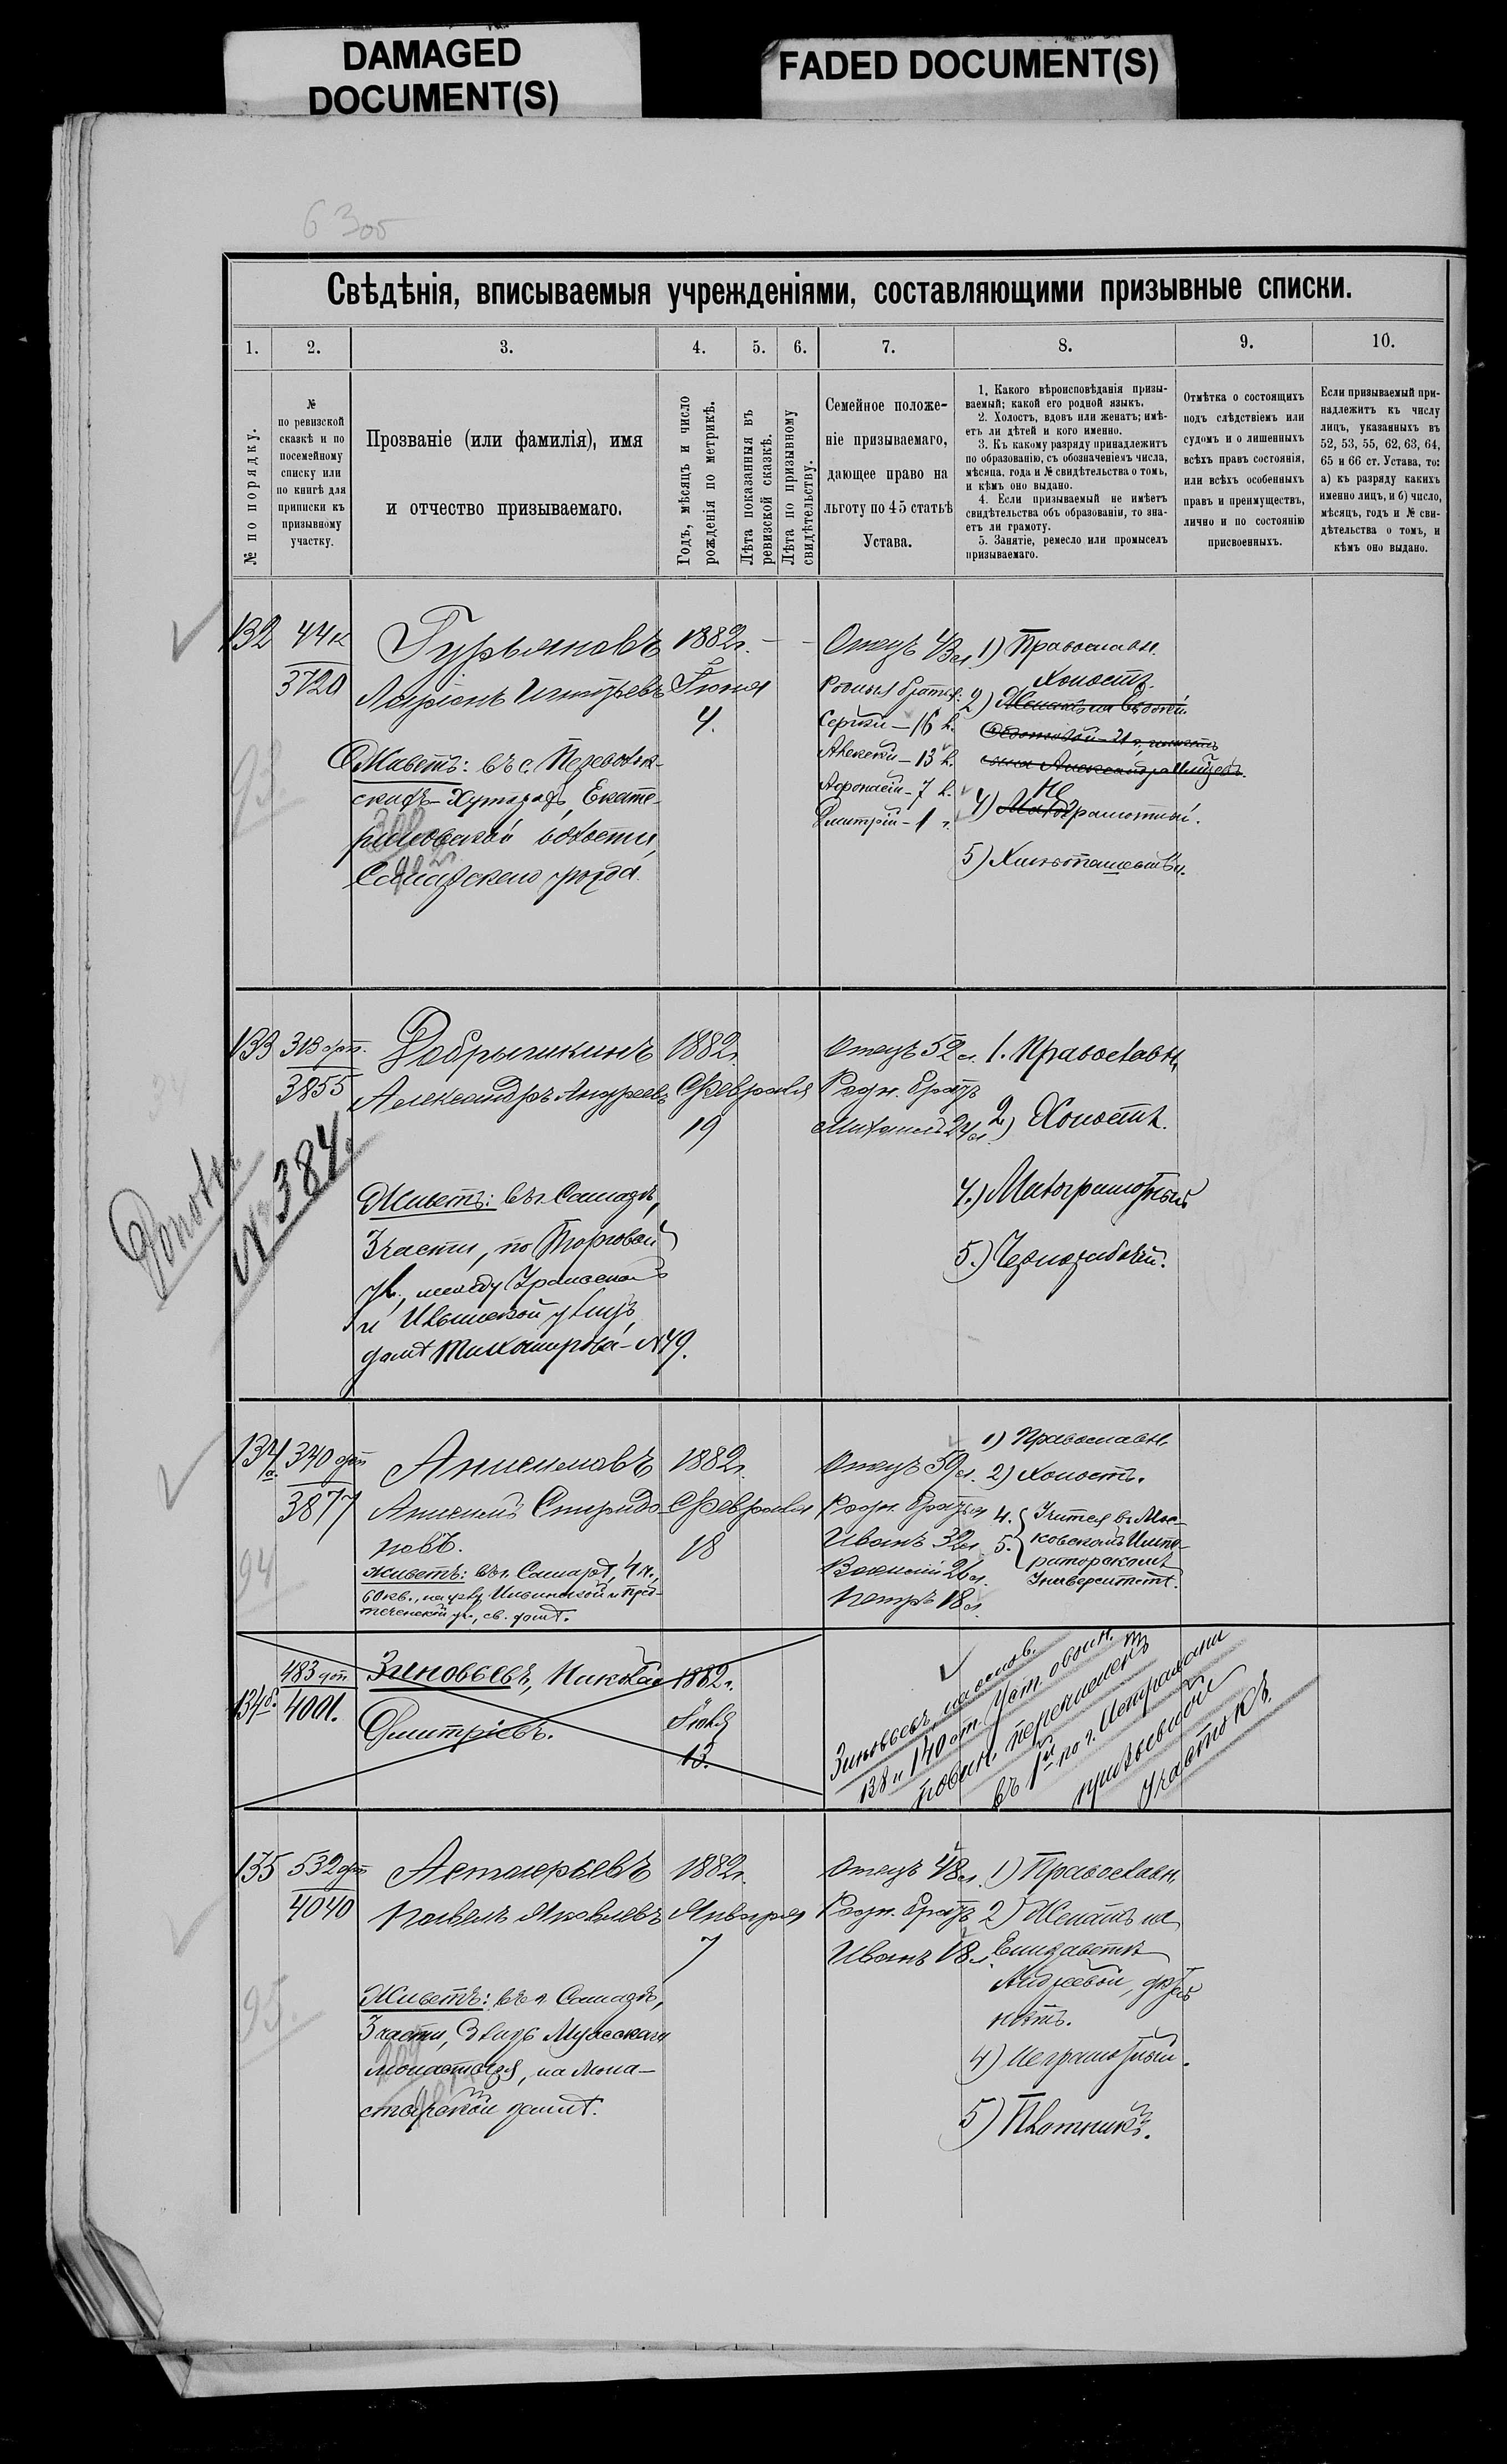 DAMAGED
DOCUMENT(S)
FADED DOCUMENT(S)
63об
Свѣдѣнія, вписываемыя учрежденіями, составляющими призывные списки.
1. 2. 3. 4. 5. 6. 7. 8. 9. 10.
№ по порядку.
№
по ревизской
сказкѣ и по
посемейному
списку или
по книгѣ для
приписки къ
призывному
участку.
Прозваніе (или фамилія), имя
и отчество призываемаго.
Годъ, мѣсяцъ и число
рожденія по метрикѣ.
Лѣта показанныя въ
ревизской сказкѣ.
Лѣта по призывному
свидѣтельству.
Семейное положе-
ніе призываемаго,
дающее право на
льготу по 45 статьѣ
Устава.
1. Какого вѣроисповѣданія призы-
ваемый; какой его родной языкъ.
2. Холостъ, вдовъ или женатъ; имѣ-
етъ ли дѣтей и кого именно.
3. Къ какому разряду принадлежитъ
по образованію, съ обозначеніемъ числа,
мѣсяца, года и № свидѣтельства о томъ,
и кѣмъ оно выдано.
4. Если призываемый не имѣетъ
свидѣтельства объ образованіи, то зна-
етъ ли грамоту.
5. Занятіе, ремесло или промыселъ
призываемаго.
Отмѣтка о состоящихъ
подъ слѣдствіемъ или
судомъ и о лишенныхъ
всѣхъ правъ состоянія,
или всѣхъ особенныхъ
правъ и преимуществъ,
лично и по состоянію
присвоенныхъ.
Если призываемый при-
надлежитъ къ числу
лицъ, указанныхъ въ
52, 53, 55, 62, 63, 64,
65 и 66 ст. Устава, то:
а) къ разряду какихъ
именно лицъ, и б) число,
мѣсяцъ, годъ и № сви-
дѣтельства о томъ, и
кѣмъ оно выдано.
132
3720
Гурьяновъ
Ларіонъ
Живетъ: въ с.
Хуторахъ, Екате-
риновской волости,
Самарскаго уѣзда.
93.
1882г.
Іюня
4.
Отецъ 43 л.
Родныя братья:
Сергѣй – 16 л.
Алексѣй – 13 л.
Афонасій – 7 л.
Дмитрій – 1 г.
1) Православн.
Холостъ.
2) Женатъ на
сына Александра
Не
4) Малограмотный.
5) Хлѣбопашеств.
133
313 орт.
3855
№ 384.
Добрычкинъ
Александръ Андреевъ
Живетъ: въ г. Самарѣ,
3 части, по Торговой
ул., между Уральской
и Ильинской улицъ,
домъ Тихомирова – № 49.
1882г.
Февраля
19
Отецъ 52 л.
Родн. братъ
Михаилъ 24 л.
1. Православн.
2) Холостъ.
4.) Малограмотный
5.) Чернорабочій.
134а.
340 орт
3877
94
Анисимовъ
Анисимъ Спиридо-
новъ.
Живетъ: въ г. Самарѣ, 4 ч.,
60 кв., на углу Ильинской и Пред-
теченской ул., св. домъ.
1882г.
Февраля
18
Отецъ 59 л.
Родн. братья
Иванъ 32 л.
Василій 26 л.
Петръ 18 л.
1) Православн.
2) Холостъ.
4. Учится въ Мос-
5. ковскомъ Импе-
раторскомъ
Университетѣ.
134б.
483 орт
4001.
Зиновьевъ, Николай
Дмитріевъ.
1882г.
Іюля
13.
Зиновьевъ, на основ.
138 и 140 ст. Уст. о воин.
повин. перечисленъ
въ 1й по г. Астрахани
призывной
участокъ.
135
532 орт
4040
95.
Астафьевъ
Павелъ Яковлевъ
Живетъ: въ г. Самарѣ,
3 части, близъ Мужскаго
монастыря, на мона-
стырской дачѣ.
1882г.
Января
7
Отецъ 48 л.
Родн. братъ
Иванъ 18 л.
1) Православн.
2) Женатъ на
Елизаветѣ
Андреевой, дѣтей
нѣтъ.
4) Неграмотный.
5) Плотникъ.